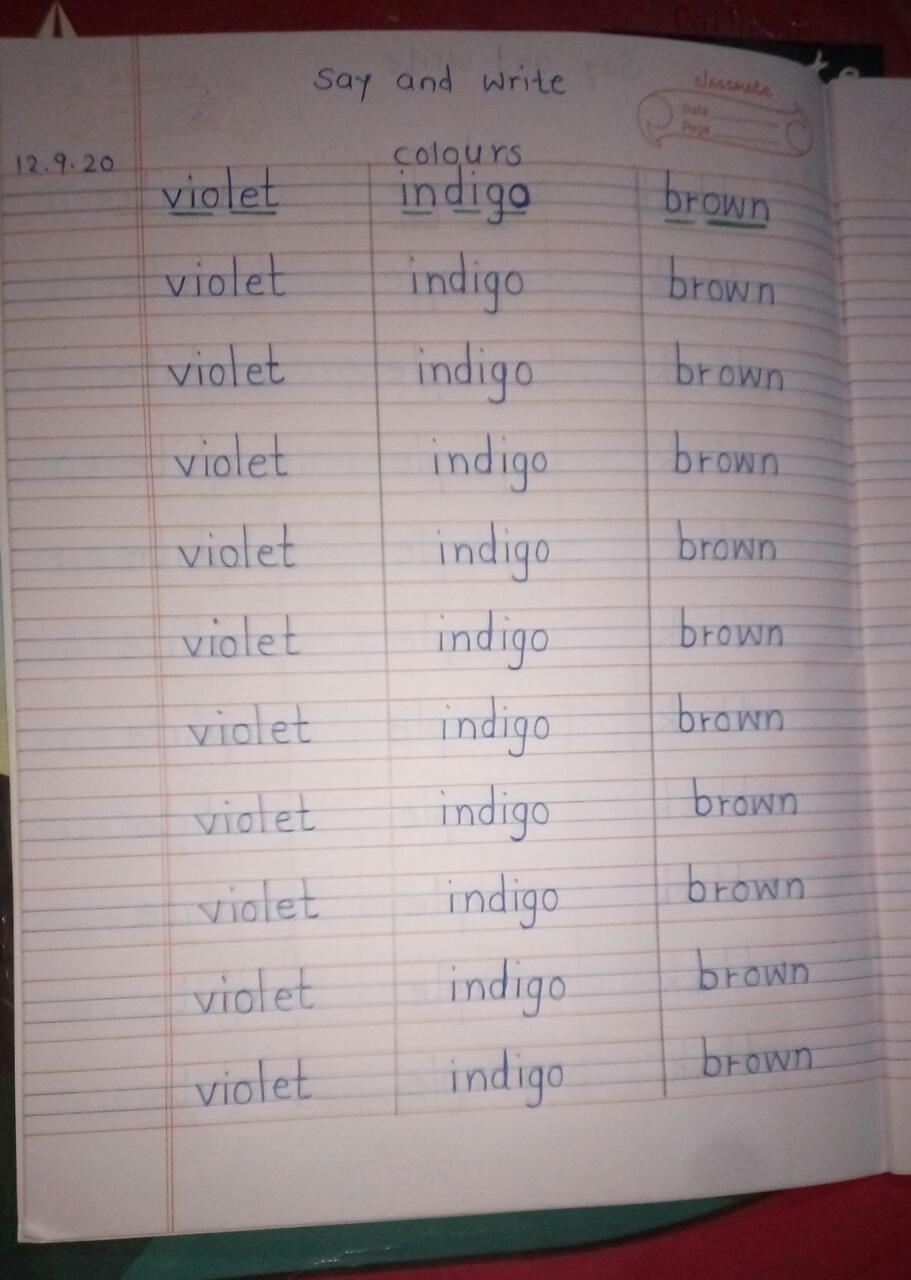 say and write
classmate
Date
Page
12.9.20
colours
violet indigo brown
violet indigo brown
violet indigo brown
violet indigo brown
violet indigo brown
violet indigo brown
violet indigo brown
violet indigo brown
violet indigo brown
violet indigo brown
violet indigo brown